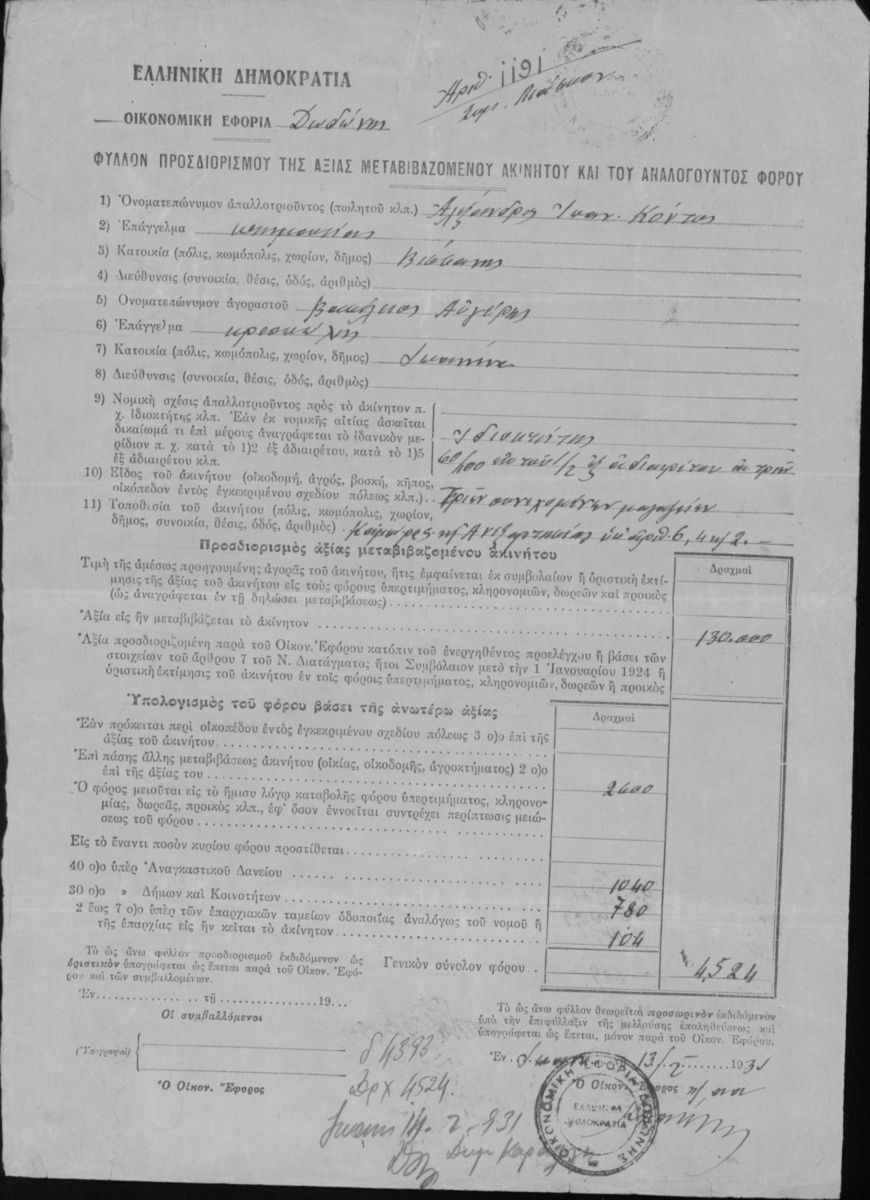 ΕΛΛΗΝΙΚΗ ΔΗΜΟΚΡΑΤΙΑ
Αριθ. 1191
ΟΙΚΟΝΟΜΙΚΗ ΕΦΟΡΙΑ Δωδώνης
ΦΥΛΛΟΝ ΠΡΟΣΔΙΟΡΙΣΜΟΥ ΤΗΣ ΑΞΙΑΣ ΜΕΤΑΒΙΒΑΖΟΜΕΝΟΥ ΑΚΙΝΗΤΟΥ ΚΑΙ ΤΟΥ ΑΝΑΛΟΓΟΥΝΤΟΣ ΦΟΡΟΥ
1) Ὀνοματεπώνυμον ἀπαλλοτριοῦντος (πωλητοῦ κλπ.) Αλέξανδρος Ιωαν. Κόντος
2) Ἐπάγγελμα κτηματίας
3) Κατοικία (πόλις, κωμόπολις, χωρίον, δῆμος)
4) Διεύθυνσις (συνοικία, θέσις, ὁδός, ἀριθμὸς)
5) Ονοματεπώνυμον ἀγοραστοῦ
6) Ἐπάγγελμα κρεοπώλης
7) Κατοικία (πόλις, κωμόπολις, χωρίον, δῆμος) Ιωάννινα
8) Διεύθυνσις (συνοικία, θέσις, ὁδός, ἀριθμὸς)
9) Νομικὴ σχέσις ἀπαλλοτριοῦντος πρὸς τὸ ἀκίνητον π.
χ. ἰδιοκτήτης κλπ. Ἐὰν ἐκ νομικῆς αἰτίας ἀσκεῖται
δικαίωμά τι ἐπὶ μέρους ἀναγράφεται τὸ ἰδανικὸν με-
ρίδιον π. χ. κατὰ τὸ 1)2 ἐξ ἀδιαιρέτου, κατὰ τὸ 1)5
ἐξ ἀδιαιρέτου κλπ.
Ιδιοκτήτης
60/100 εκ του 1/2 εξ αδιαιρέτου εκ τριών
10) Εἶδος τοῦ ἀκινήτου (οἰκοδομή, ἀγρός, βοσκή, κῆπος,
οἰκόπεδον ἐντὸς ἐγκεκριμένου σχεδίου πόλεως κλπ.) Τριών συνεχομένων μαγαζείων
11) Τοποθεσία τοῦ ἀκινήτου (πόλις, κωμόπολις, χωρίον,
δῆμος, συνοικία, θέσις, ὁδός, ἀριθμὸς) Ανεξαρτησίας υπ αριθ. 6, 4 και 2.
Προσδιορισμὸς ἀξίας μεταβιβαζομένου ἀκινήτου
Δραχμαὶ
Τιμὴ τῆς ἀμέσως προηγουμένης ἀγορᾶς τοῦ ἀκινήτου, ἥτις ἐμφαίνεται ἐκ συμβολαίων ἢ ὁριστικὴ ἐκτί-
μησις τῆς ἀξίας τοῦ ἀκινήτου εἰς τοὺς φόρους ὑπερτιμήματος, κληρονομιῶν, δωρεῶν καὶ προικὸς
(ὡς ἀναγράφεται ἐν τῇ δηλώσει μεταβιβάσεως)
Ἀξία εἰς ἣν μεταβιβάζεται τὸ ἀκίνητον 130.000
Ἀξία προσδιοριζομένη παρὰ τοῦ Οἰκον. Ἐφόρου κατόπιν τοῦ ἐνεργηθέντος προελέγχου ἢ βάσει τῶν
στοιχείων τοῦ ἄρθρου 7 τοῦ Ν. Διατάγματος ἤτοι Συμβόλαιον μετὰ τὴν 1 Ἰανουαρίου 1924 ἢ
ὁριστικὴ ἐκτίμησις τοῦ ἀκινήτου ἐν τοῖς φόροις ὑπερτιμήματος, κληρονομιῶν, δωρεῶν ἢ προικὸς
Ὑπολογισμὸς τοῦ φόρου βάσει τῆς ἀνωτέρω ἀξίας
Δραχμαὶ
Ἐὰν πρόκειται περὶ οἰκοπέδου ἐντὸς ἐγκεκριμένου σχεδίου πόλεως 3 ο)ο ἐπὶ τῆς
ἀξίας τοῦ ἀκινήτου
Ἐπὶ πάσης ἄλλης μεταβιβάσεως ἀκινήτου (οἰκίας, οἰκοδομῆς, ἀγροκτήματος) 2 ο)ο
ἐπὶ τῆς ἀξίας του 2600
Ὁ φόρος μειοῦται εἰς τὸ ἥμισυ λόγῳ καταβολῆς φόρου ὑπερτιμήματος, κληρονο-
μίας, δωρεᾶς, προικὸς κλπ., ἐφ' ὅσον ἐννοεῖται συντρέχει περίπτωσις μειώ-
σεως τοῦ φόρου
Εἰς τὸ ἔναντι ποσὸν κυρίου φόρου προστίθεται
40 ο)ο ὑπὲρ Ἀναγκαστικοῦ Δανείου 1040
30 ο)ο » Δήμων καὶ Κοινοτήτων 780
2 ἕως 7 ο)ο ὑπὲρ τῶν ἐπαρχιακῶν ταμείων ὁδοποιΐας ἀναλόγως τοῦ νομοῦ ἢ
τῆς ἐπαρχίας εἰς ἣν κεῖται τὸ ἀκίνητον 104
Γενικὸν σύνολον φόρου 4.524
Τὸ ὡς ἄνω φύλλον προσδιορισμοῦ ἐκδιδόμενον ὡς
ὁριστικὸν ὑπογράφεται ὡς ἕπεται παρὰ τοῦ Οἰκον. Ἐφό-
ρου καὶ τῶν συμβαλλομένων.
Ἐν τῇ 19
Οἱ συμβαλλόμενοι
(Ὑπογραφαὶ)
Ὁ Οἰκον. Ἔφορος
Τὸ ὡς ἄνω φύλλον θεωρεῖται προσωρινὸν ἐκδιδόμενον
ὑπὸ τὴν ἐπιφύλαξιν τῆς μελλούσης ἐπαληθεύσεως καὶ
ὑπογράφεται ὡς ἕπεται, μόνον παρὰ τοῦ Οἰκον. Ἐφόρου.
Ἐν 13/2 1931
Ὁ Οἰκον. Ἔφορος
ΟΙΚΟΝΟΜΙΚΗ ΕΦΟΡΙΑ ΔΩΔΩΝΗΣ
ΕΛΛΗΝΙΚΗ
ΔΗΜΟΚΡΑΤΙΑ
δ 4393
Δρχ 4524.
14-2-931